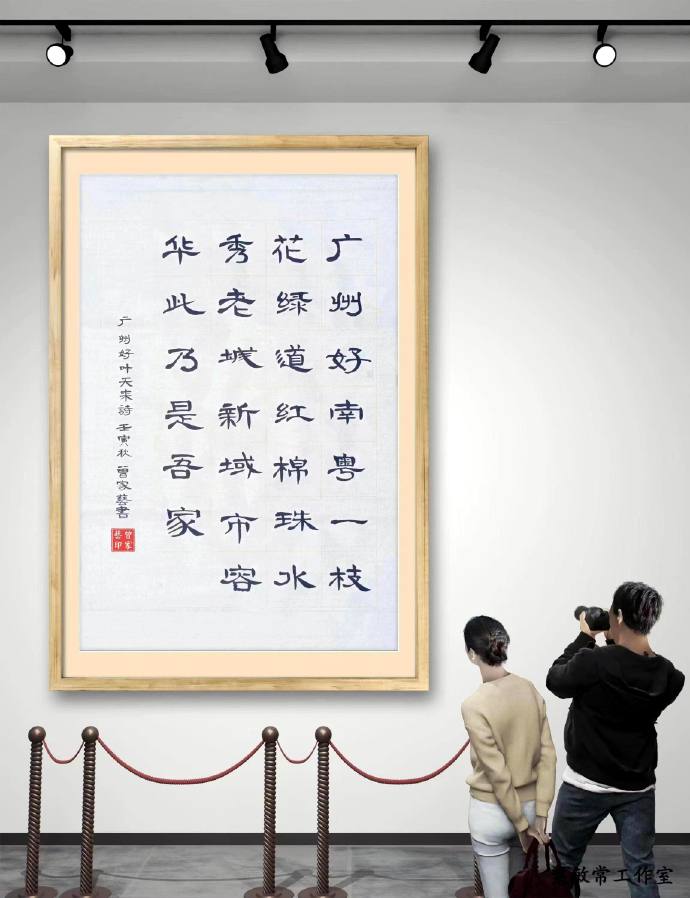 广州好南粤一枝
花绿道红棉珠水
秀老城新域市容
华此乃是吾家
广州好叶天来詩 壬寅秋 曾家藝書
曾家藝印
敏常工作室